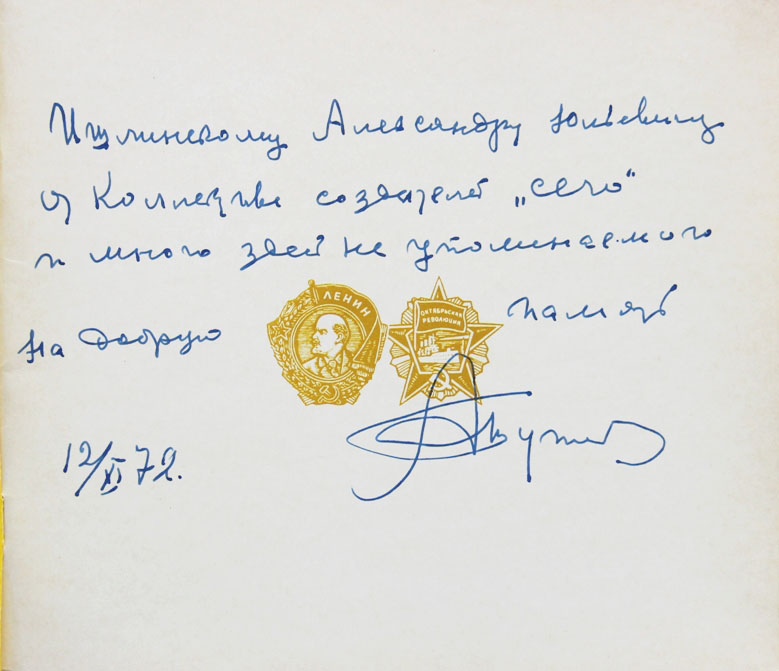 Ишлинскому Александру Юльевичу
от Коллектива создателей „сего“
и много здесь не упоминаемого
на добрую память
ЛЕНИН
ОКТЯБРЬСКАЯ
РЕВОЛЮЦИЯ
12/XI 72.